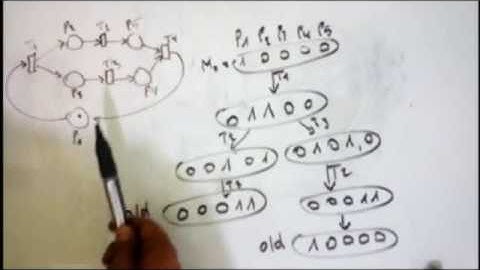 P2 T2 P5
T1 T4
P3 T3 P4
P1
P1 P2 P3 P4 P5
M0 = 1 0 0 0 0
T1
0 1 1 0 0
T2 T3
0 0 1 0 1
0 1 0 1 0
T3 T2
old 0 0 0 1 1
0 0 0 1 1
old 1 0 0 0 0